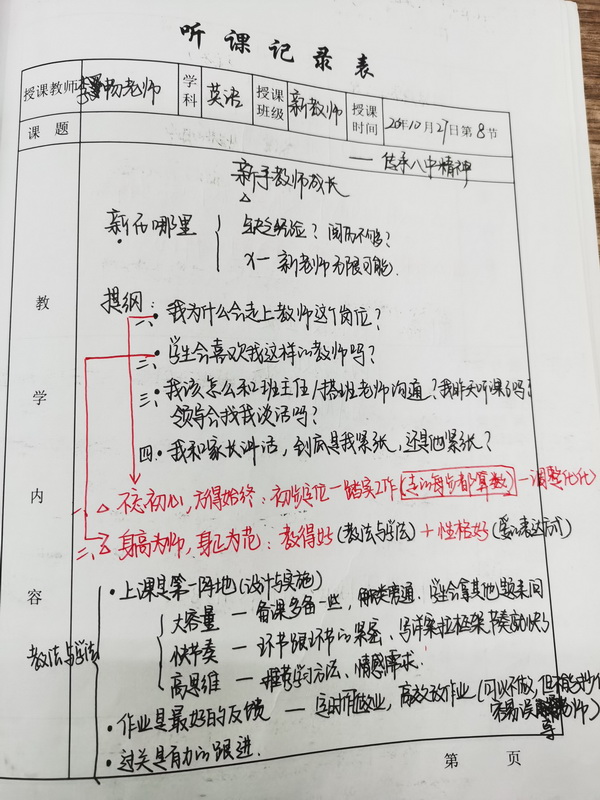 听课记录表
授课教师 李 畅老师 学科 英语 授课班级 新教师 授课时间 20 年10月27日第8节
课题 ——传承八中精神
新手教师成长
新在哪里 缺乏经验？阅历不够？
x— 新老师无限可能.
提纲：
一、我为什么会走上教师这个岗位？
二、学生会喜欢我这样的教师吗？
三、我该怎么和班主任/搭班老师沟通？我昨天听课了吗？
领导会找我谈话吗？
四、我和家长讲话，到底是我紧张，还是他紧张？
一、不忘初心，方得始终：初步定位—踏实工作(走的每步都算数)—调整优化
二、身高为师，身正为范：教得好(教法与学法)＋性格好(爱的表达方式)
教学内容
教法与学法
·上课是第一阵地(设计与实施)
大容量 — 备课多备一些，触类旁通，学生会拿其他题来问
快节奏 — 环节跟环节的紧密，写详案拉框架 节奏加快
高思维 — 推荐学习方法、情感需求.
·作业是最好的反馈 — 定时作业，高效放作业(可以不做，但不能抄)
容易误导老师)
·过关是有力的跟进.
第 页